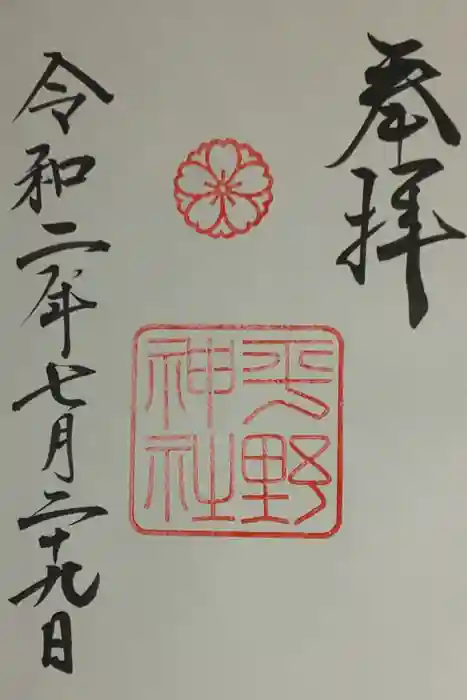 奉拝
平野
神社
令和二年七月二十九日